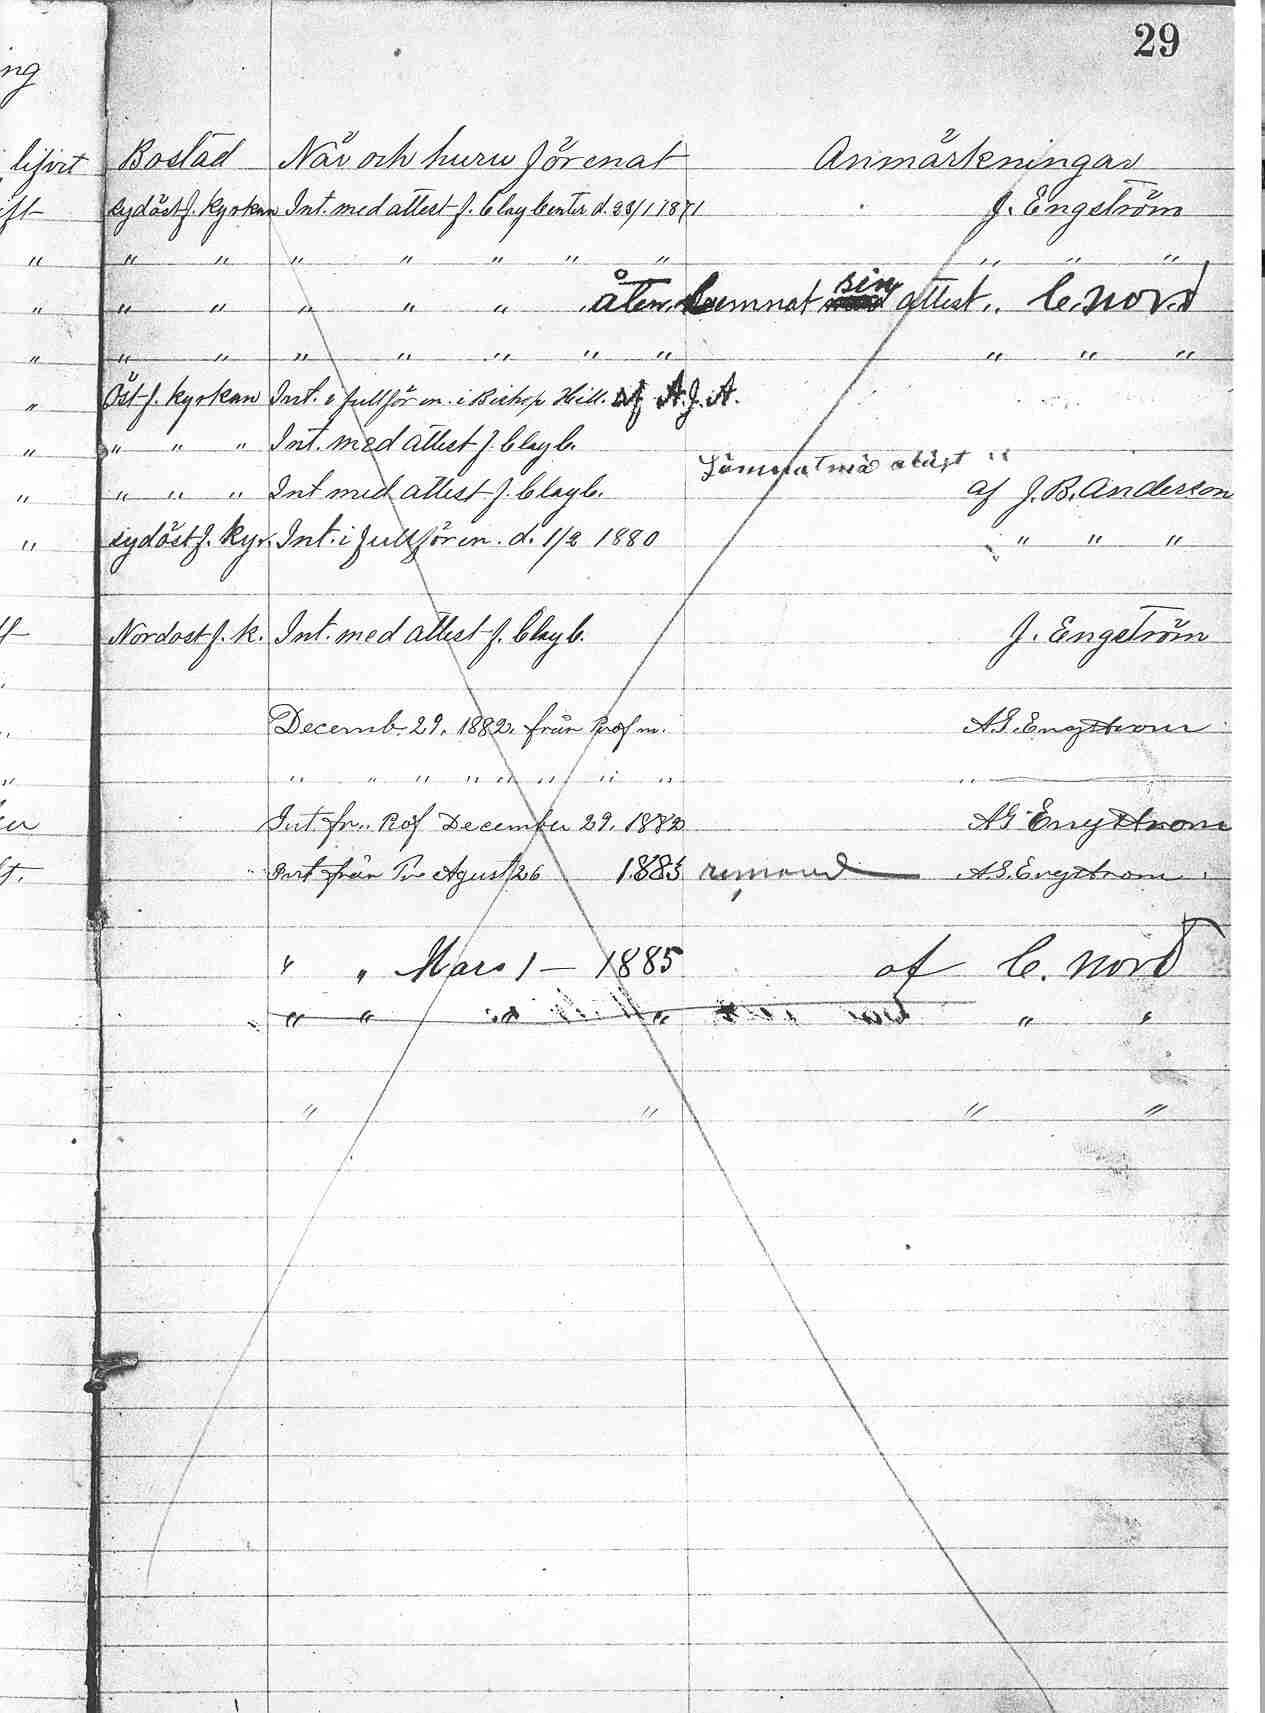 29
ng
lifvit Bostad När och huru förenat Anmärkningar
ift sydöst f. Kyrkan Int. med attest f. Clay Center d. 23/1 1871 J. Engström
" " " " " " " " " " "
" " " " " " åter lemnat sin attest " C. Nord
" " " " " " " " " " "
" Öst f. Kyrkan Int. i full för en. i Bishop Hill. af A. J. A.
" " " " Int. med attest f. Clay C.
Lämnat "
" " " " Int med attest f. Clay C. af J. B. Anderson
" sydöst f. Kyr. Int. i full för en. d. 1/2 1880 " " "
Nordost f. K. Int. med attest f. Clay C. J. Engström
Decemb. 29. 1882. från Prof m. A. G. Engstrom
" " " " " " " " " "
Int fr. Prof December 29. 1882 A G Engstrom
ft. Int från Pr Agust 26 1883 removed A. G. Engstrom
" " Mars 1 — 1885 af C. Nord
" " " " " "
" " " "